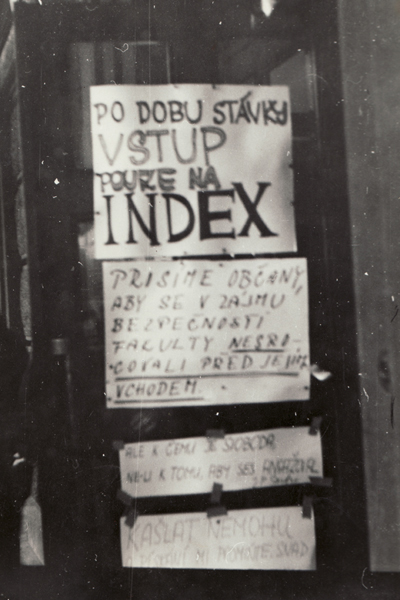 PO DOBU STÁVKY
VSTUP
POUZE NA
INDEX
PROSÍME OBČANY,
ABY SE V ZÁJMU
BEZPEČNOSTI
FAKULTY NESRO-
COVALI PŘED JEJÍM
VCHODEM.
ALE K ČEMU JE SVOBODA,
NE-LI K TOMU, ABY SES
KAŠLAT NEMOHU
MI POMOŽTE, SNAD